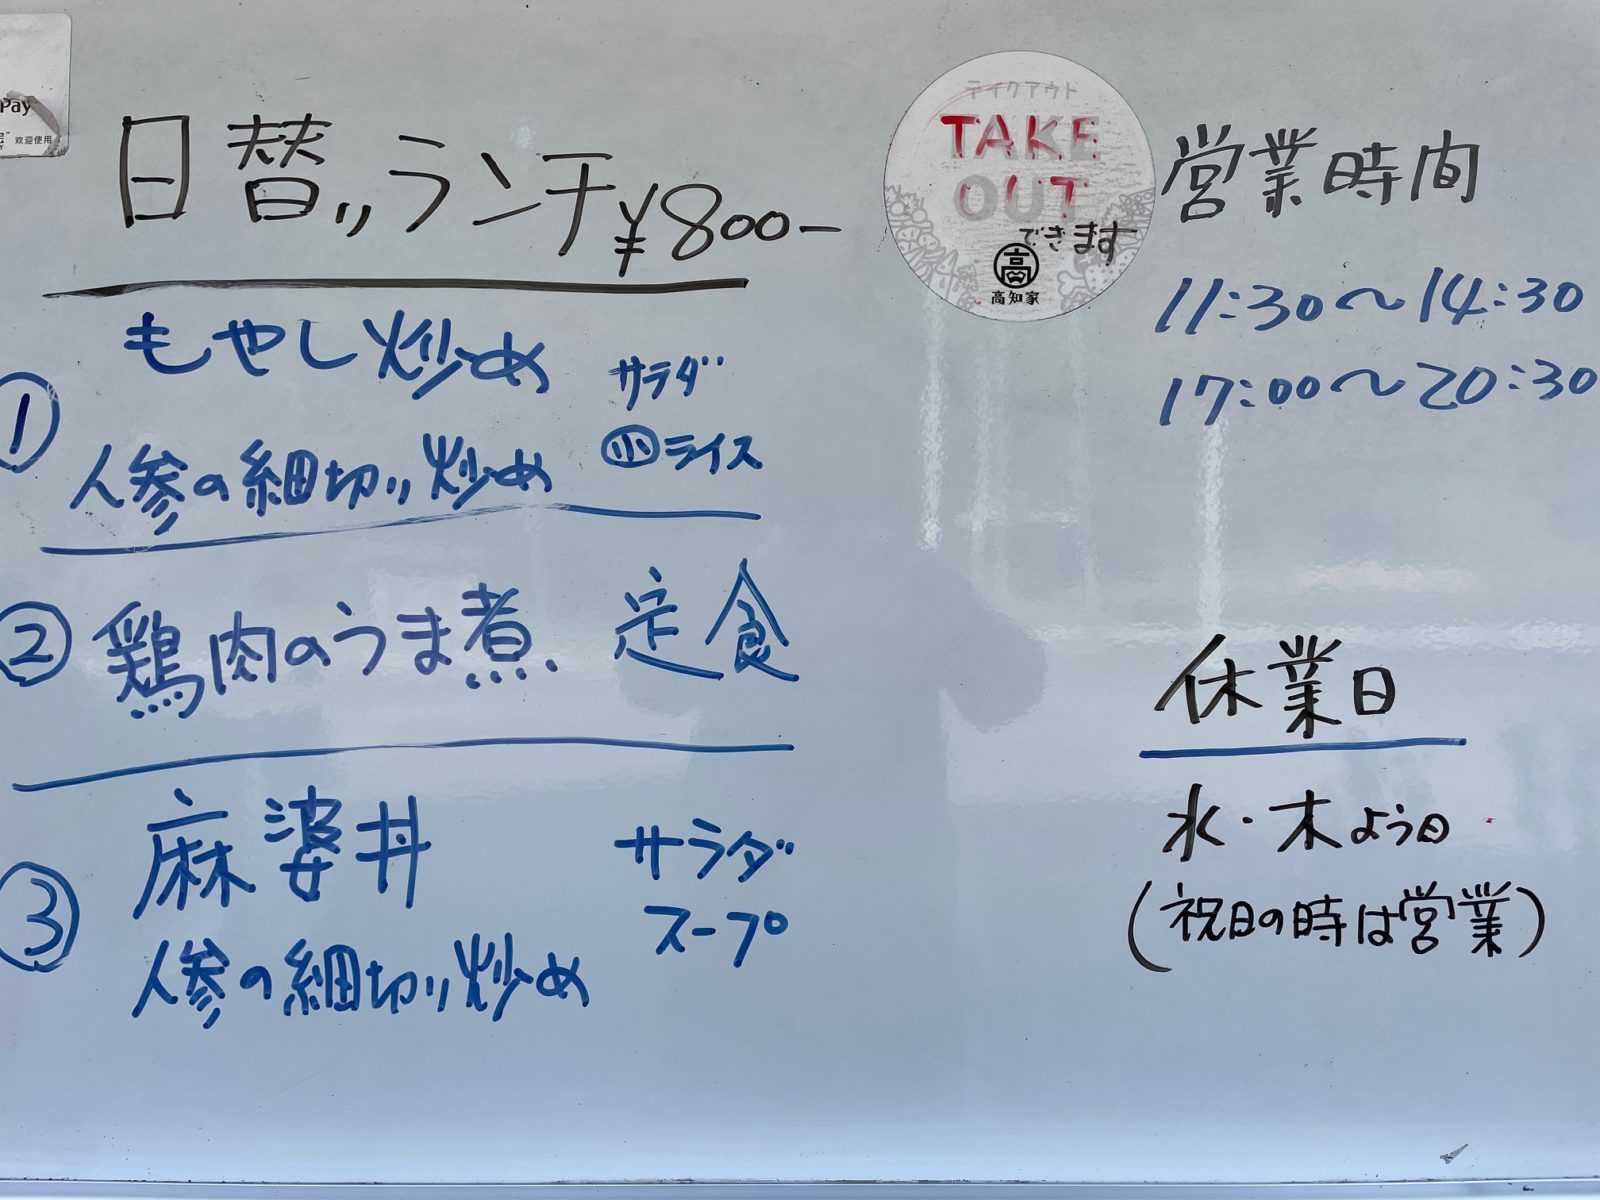 Pay
欢迎使用
日替りランチ ¥800-
① もやし炒め サラダ
人参の細切り炒め 小ライス
② 鶏肉のうま煮 定食
③ 麻婆丼 サラダ
スープ
人参の細切り炒め
テイクアウト
TAKE
OUT
できます
高
高知家
営業時間
11:30〜14:30
17:00〜20:30
休業日
水・木よう日
(祝日の時は営業)